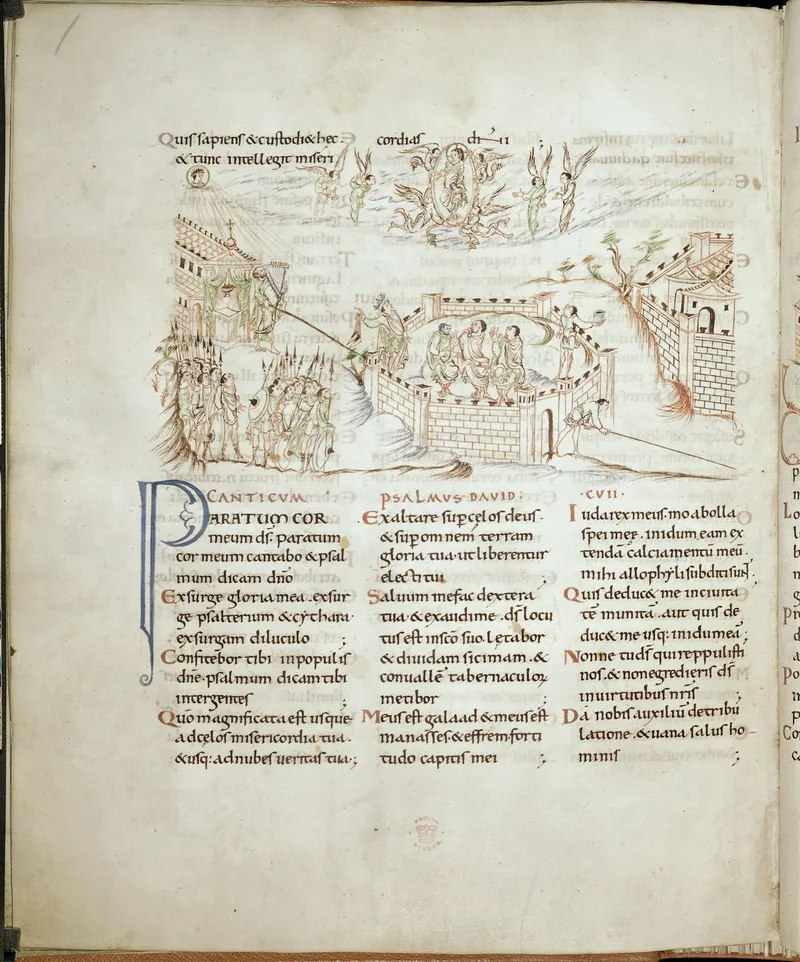 Quis sapiens & custodi& hec
& tunc intelleg& miseri
cordias dñi ;
CANTICUM
PARATUM COR
meum dš. paratum
cor meum cantabo & psal
mum dicam dño
Exsurge gloria mea. exsur
ge psalterium & cythara.
exsurgam diluculo ;
Confitebor tibi in populis
dñe. psalmum dicam tibi
in gentes ;
Quo magnificata est usque
ad celos misericordia tua.
& usq: ad nubes veritas tua ;
PSALMUS DAVID.
Exaltare sup celos deus.
& sup omnem terram
gloria tua. ut liberentur
electi tui ;
Saluum me fac dextera
tua. & exaudi me. dš locu
tus est in sčo suo. Letabor
& dividam sicimam. &
convallē tabernaculoꝝ
metibor ;
Meus est galaad & meus est
manasses. & effrem forti
tudo capitis mei ;
.CVII.
Iuda rex meus. moab olla
spei meę. in idumeam ex
tendā calciamentū meū.
mihi allophyli subditi sunt.
Quis deduc& me in civita
tē munitā. aut quis de
duc& me usq: in idumeā ;
Nonne tu dš qui reppulisti
nos. & non egredieris dš
in virtutibus nr̄is ;
Da nobis auxiliū de tribu
latione. & vana salus ho
minis ;
BRITISH
MUSEUM